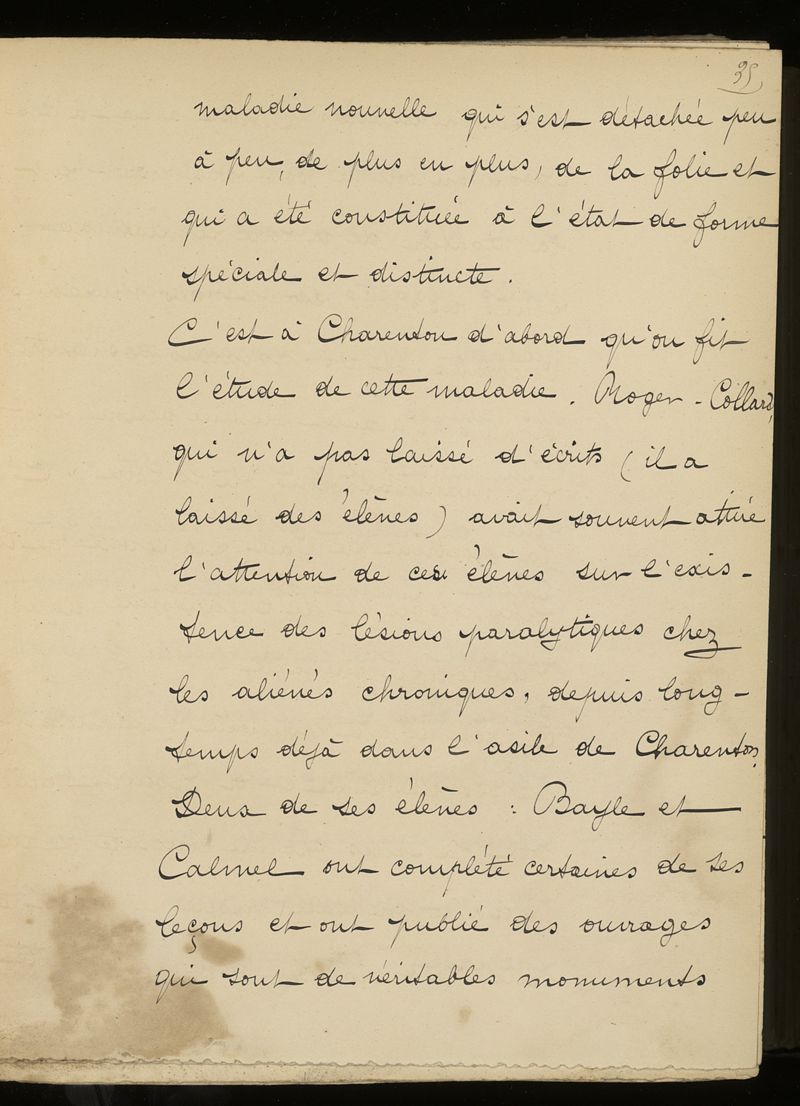 35
maladie nouvelle qui s'est détachée peu
à peu, de plus en plus, de la folie et
qui a été constituée à l'état de forme
spéciale et distincte.
C'est à Charenton d'abord qu'on fit
l'étude de cette maladie. Roger-Collard,
qui n'a pas laissé d'écrits (il a
laissé des élèves) avait souvent attiré
l'attention de ces élèves sur l'exis-
tence des lésions paralytiques chez
les aliénés chroniques, depuis long-
temps déjà dans l'asile de Charenton.
Deux de ses élèves : Bayle et
Calmel ont complété certaines de ses
leçons et ont publié des ouvrages
qui sont de véritables monuments